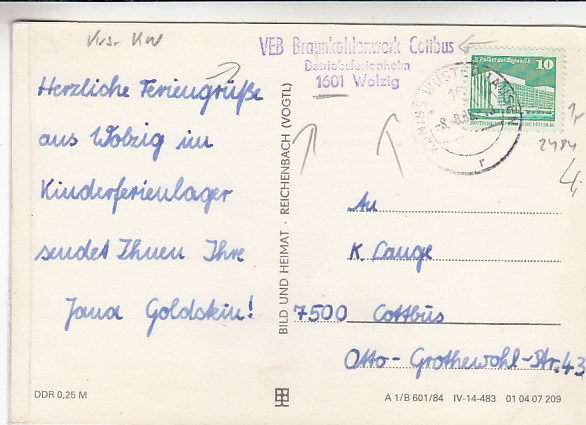 Vkst KW
VEB Braunkohlenwerk Cottbus
Betriebsferienheim
1601 Wolzig
Palast der Republik 10
DEUTSCHE DEMOKRATISCHE REPUBLIK
KÖNIGS WUSTERHAUSEN
Herzliche Feriengrüße
aus Wolzig im
Kinderferienlager
sendet Ihnen Ihre
Jana Goldstein!
BILD UND HEIMAT · REICHENBACH (VOGTL)
2484
An
K. Lange
7500 Cottbus
Otto-Grothewohl-Str. 43
DDR 0,25 M
A 1/B 601/84 IV-14-483 01 04 07 209